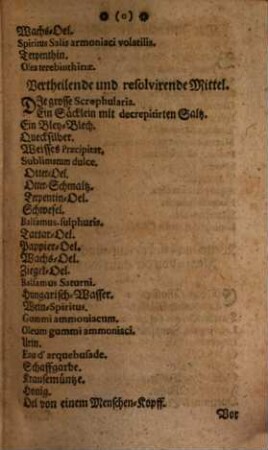 (o)
Wachs-Oel.
Spiritus Salis armoniaci volatilis.
Terpenthin.
Olea terebinthinæ.
Vertheilende und resolvirende Mittel.
Die grosse Scrophularis.
Ein Säcklein mit decrepitirten Saltz.
Ein Bley-Blech.
Quecksilber.
Weisses Præcipitat.
Sublimatum dulce.
Otter-Oel.
Otter-Schmaltz.
Terpentin-Oel.
Schwefel.
Balsamus sulphuris.
Tartar-Oel.
Pappier-Oel.
Wachs-Oel.
Ziegel-Oel.
Balsamus Saturni.
Hungarisch-Wasser.
Wein-Spiritus.
Gummi ammoniacum.
Oleum gummi ammoniaci.
Urin.
Eau d'arquebusade.
Schaffgarbe.
Krausemüntze.
Honig.
Oel von einem Menschen-Kopff.
Vor